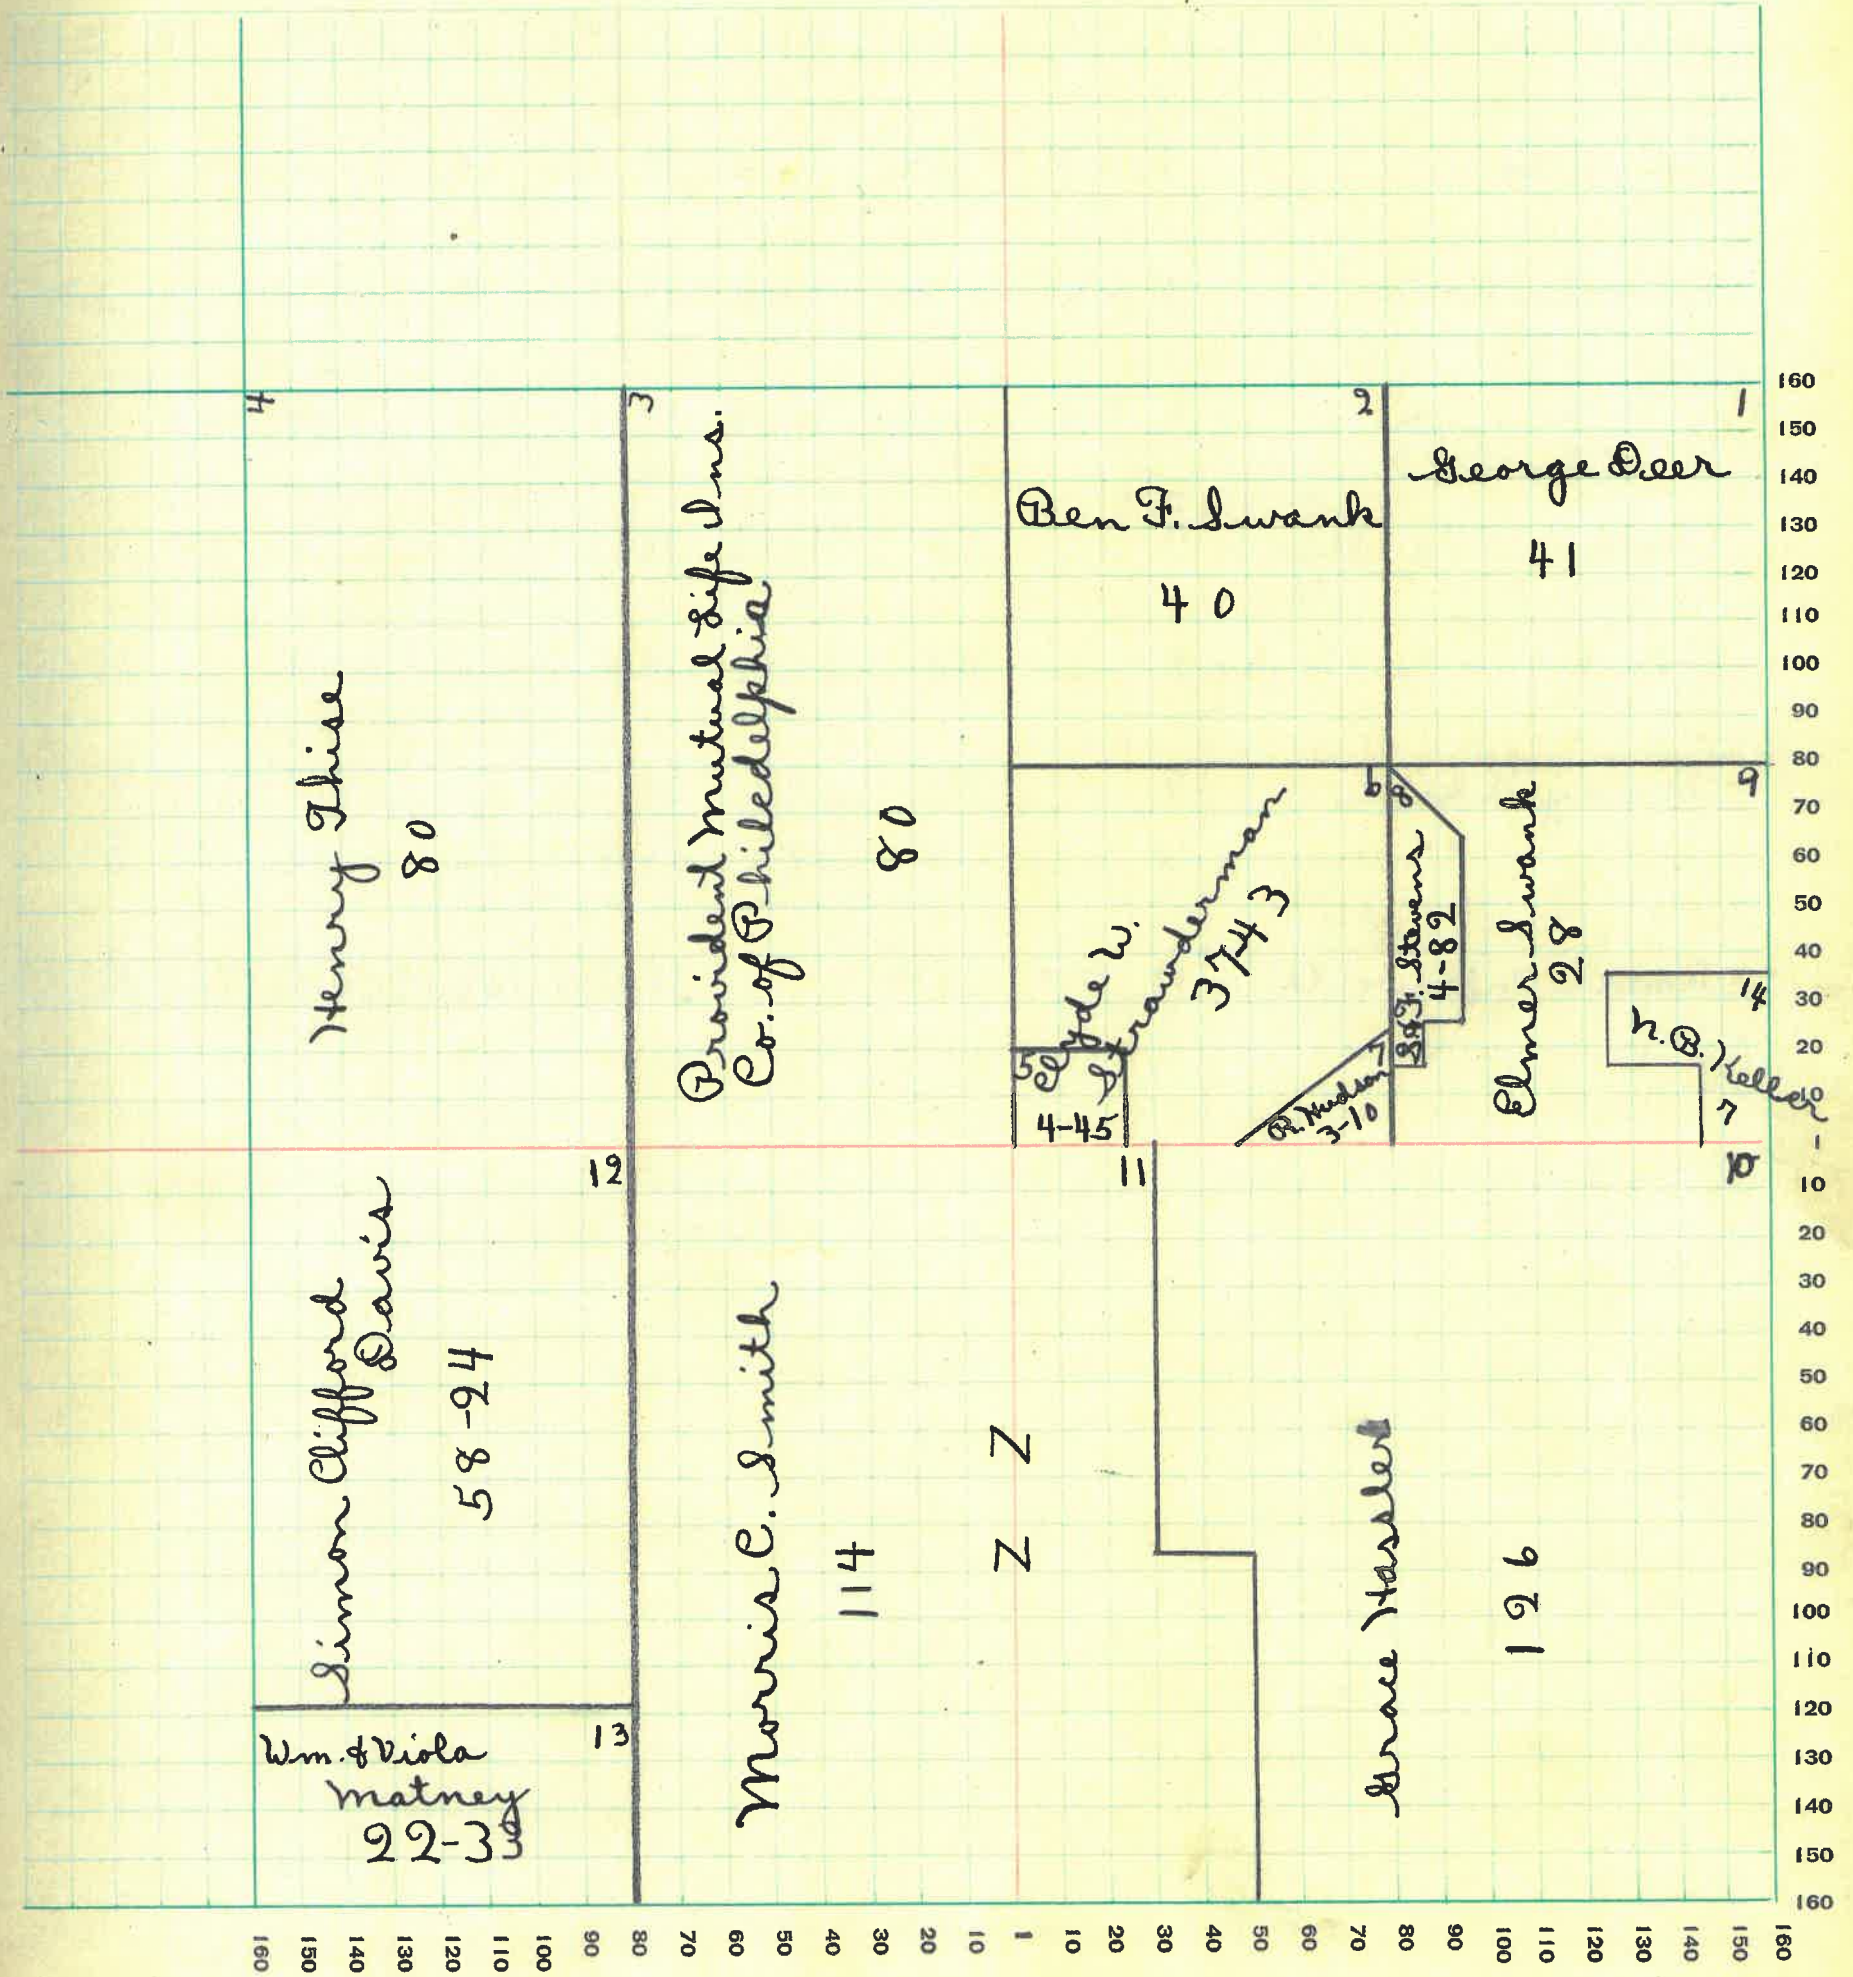 4
3
2
1
Henry Thise
80
Provident Mutual Life Ins.
Co. of Philedelphia
80
Ben F. Swank
40
George Deer
41
5
Clyde W.
Strawderman
3743
4-45
6
7
R. Hudson
3-10
8
S. F. Stevens
4-82
9
Elmer Swank
28
14
N. B. Keller
7
12
Simon Clifford
Davis
58-24
13
Wm. & Viola
Matney
22-33
11
Morris C. Smith
114
Z Z
10
Grace Hassler
126
160
150
140
130
120
110
100
90
80
70
60
50
40
30
20
10
1
10
20
30
40
50
60
70
80
90
100
110
120
130
140
150
160
160 150 140 130 120 110 100 90 80 70 60 50 40 30 20 10 1 10 20 30 40 50 60 70 80 90 100 110 120 130 140 150 160